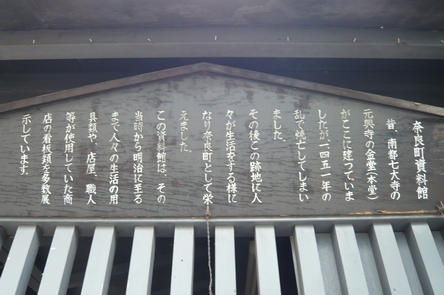 奈良町資料館
昔、南都七大寺の
元興寺の金堂(本堂)
がここに建っていま
したが一四五一年の
乱で焼亡してしまい
ました。
その後この跡地に人
々が生活をする様に
なり奈良町として栄
えました。
この資料館は、その
当時から明治に至る
まで人々の生活の用
具類や、店屋、職人
等が使用していた商
店の看板類を多数展
示しています。